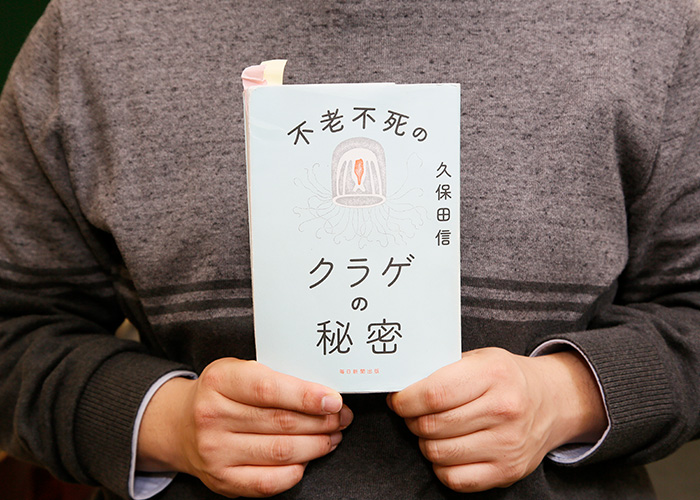 不老不死の
久保田信
クラゲ
の
秘密
毎日新聞出版